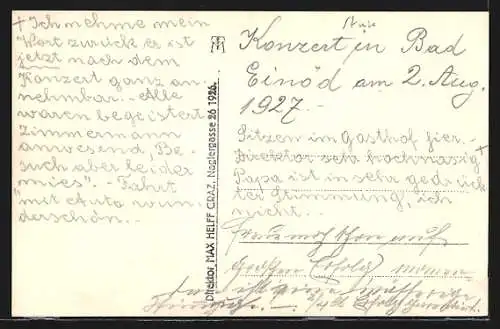 + Ich nehme mein
Wort zurück er ist
jetzt nach dem
Konzert ganz an-
nehmbar. - Alle
waren begeistert
Zimmermann
anwesend Be-
such aber leider
mies". - Fahrt
mit Auto wun-
derschön. -
Direktor MAX HELFF GRAZ, Naglergasse 26 1926.
Konzert in Bad
Einöd am 2. Aug.
1927. -
Sitzen im Gasthof hier. -
Direktor sehr hochnäsig +
Papa ist in sehr gedrück
ter Stimmung, ich
nicht. -
auf
großen Erfolg
ist